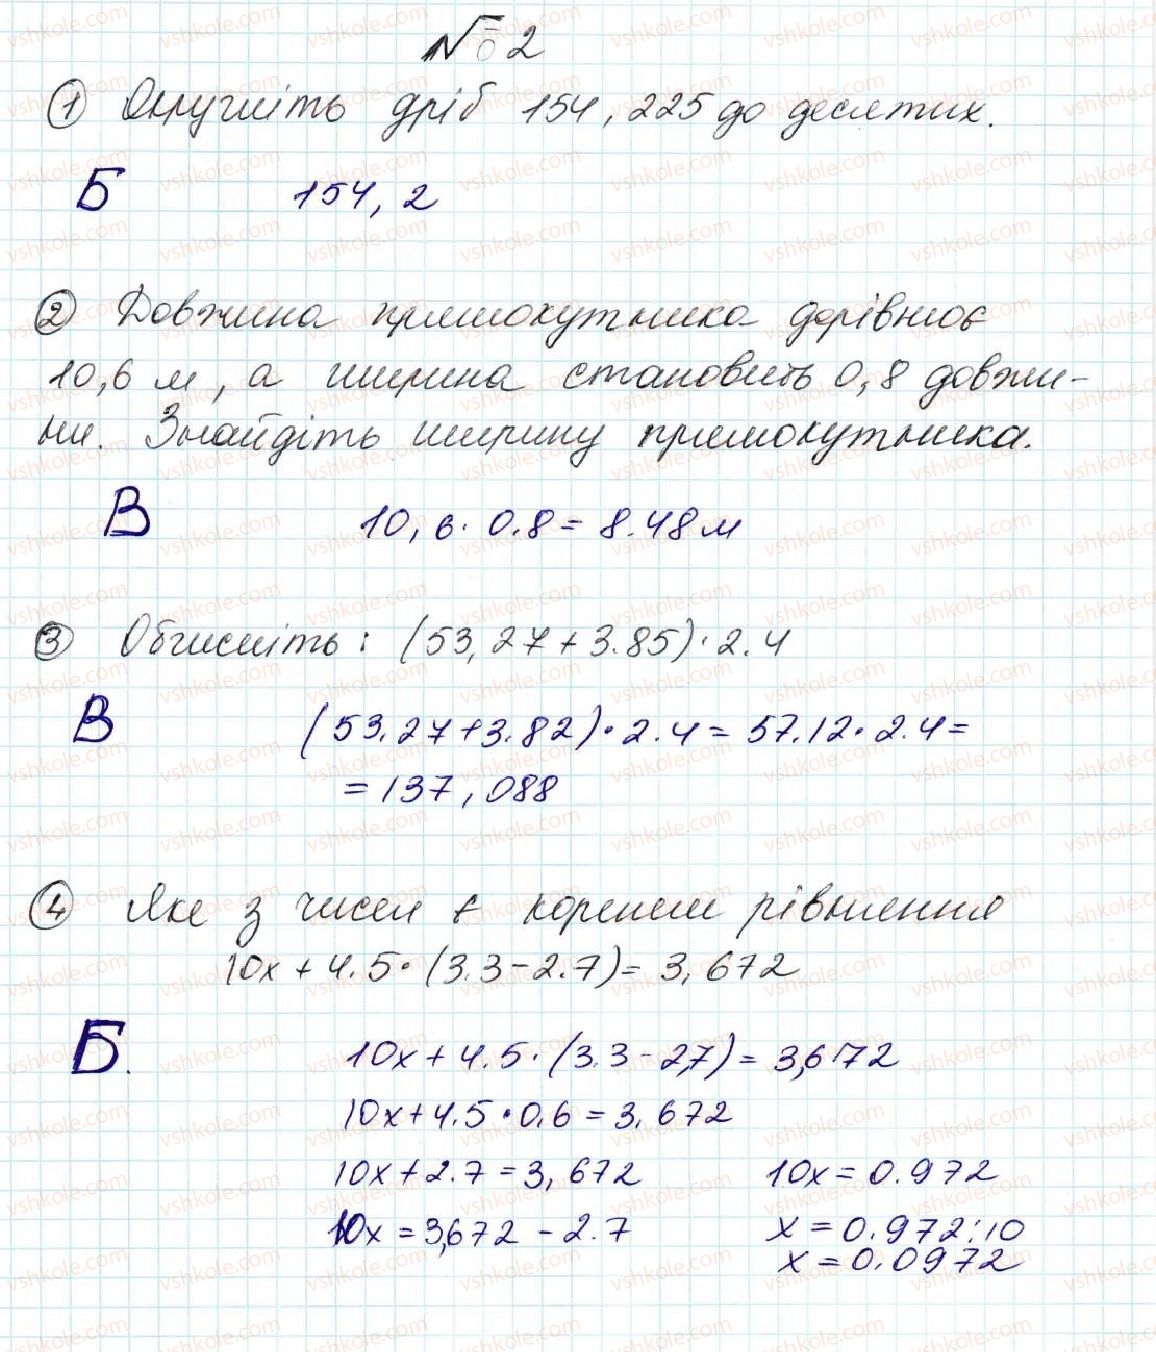 № 2
① Округліть дріб 154,225 до десятих.
Б 154,2
② Довжина прямокутника дорівнює
10,6 м, а ширина становить 0,8 довжи-
ни. Знайдіть ширину прямокутника.
В 10,6 · 0.8 = 8.48 м
③ Обчисліть: (53,27 + 3.85) · 2.4
В (53.27 + 3.82) · 2.4 = 57.12 · 2.4 =
= 137,088
④ Яке з чисел є коренем рівняння
10x + 4.5 · (3.3 - 2.7) = 3,672
Б. 10x + 4.5 · (3.3 - 2,7) = 3,672
10x + 4.5 · 0.6 = 3.672
10x + 2.7 = 3,672
10x = 3,672 - 2.7
10x = 0.972
x = 0.972 : 10
x = 0.0972